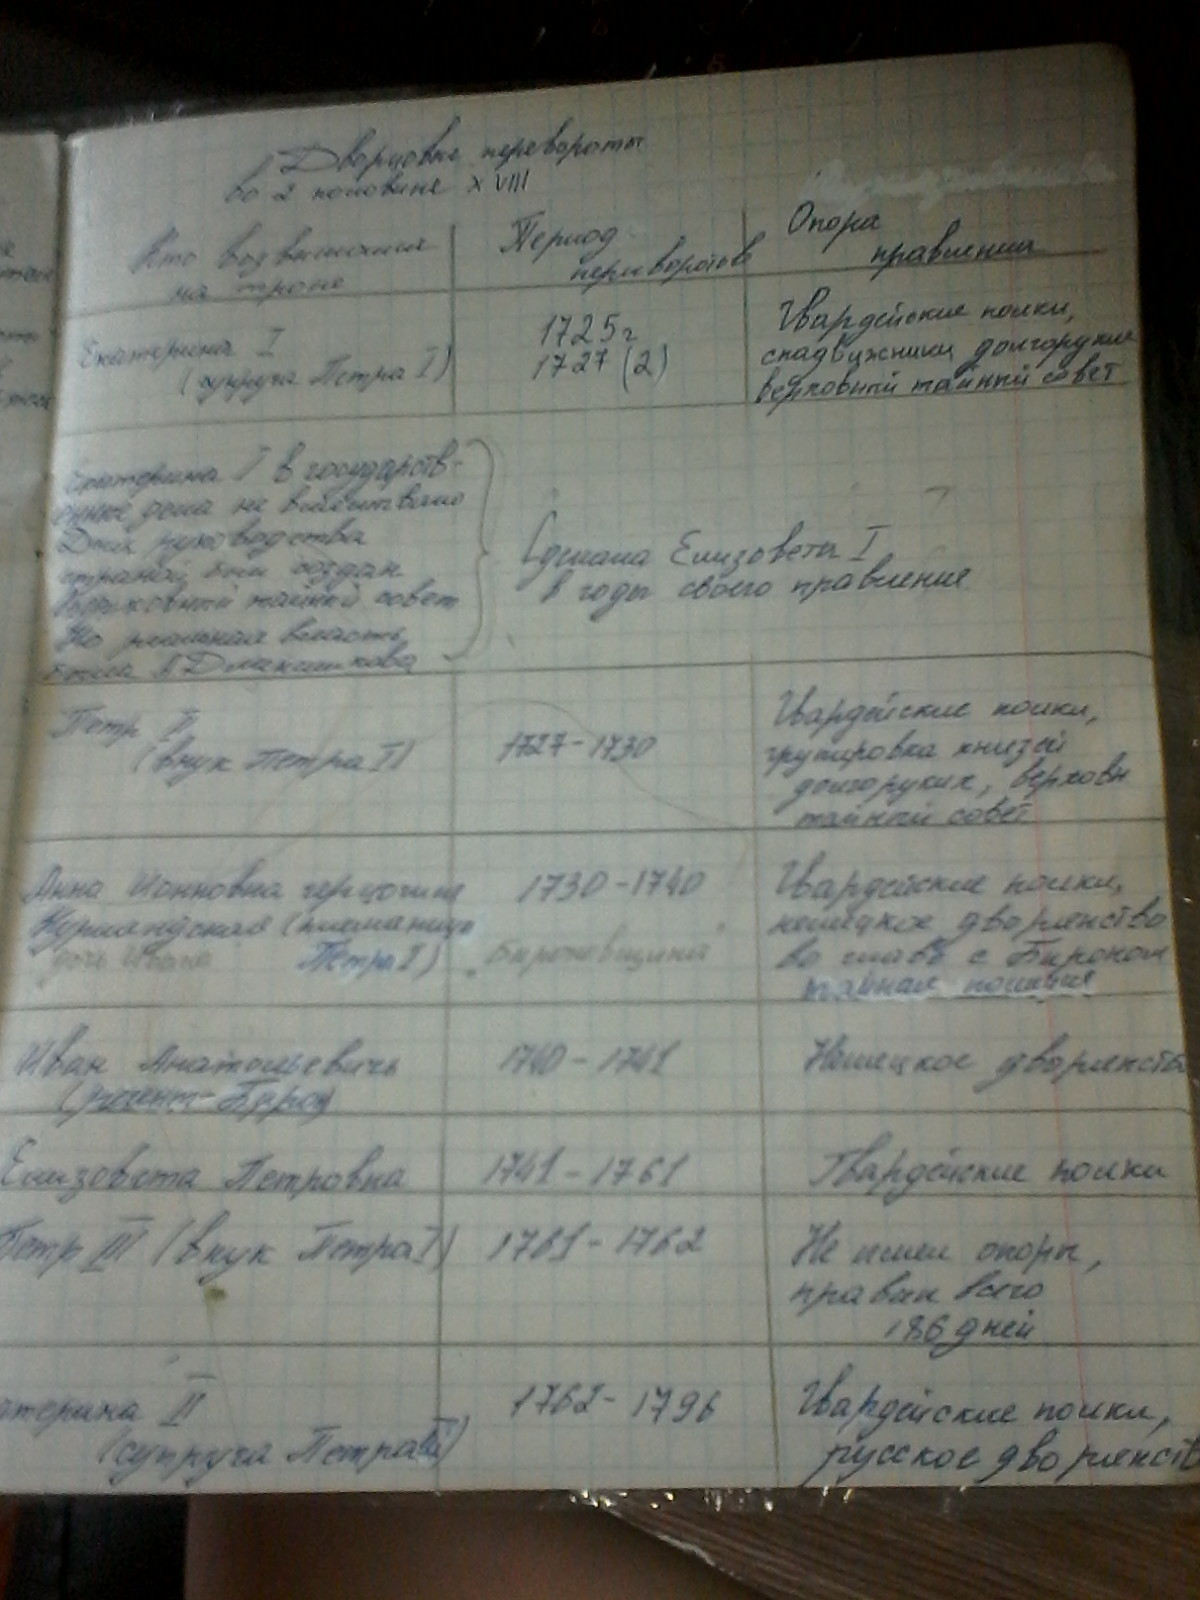 Дворцовые перевороты
во 2 половине XVIII
Кто возвышался
на троне
Период
переворотов
Опора
правления
Екатерина I
(супруга Петра I)
1725г
1727 (2)
Гвардейские полки,
сподвижники долгорукие
верховный тайный совет
Екатерина I в государств-
енные дела не
Для руководства
страной был создан
Верховный тайный совет
Но реальная власть
была А Д Меншикова
Сделала Елизовета I
в годы своего правления
Петр II
(внук Петра I)
1727-1730
Гвардейские полки,
групировка князей
долгоруких, верховн
тайный совет
Анна Ионновна герцогиня
Курляндская (племянница
дочь Ивана Петра I)
1730-1740
Бироновщина
Гвардейские полки,
немецкое дворянство
во главе с Бироном
тайная полиция
Иван Анатольевичь
(регент-Бирон)
1740-1741
Немецкое дворянство
Елизовета Петровна
1741-1761
Гвардейские полки
Петр III (внук Петра I)
1761-1762
Не имел опоры,
правил всего
186 дней
атерина II
(супруга Петра III)
1762-1796
Гвардейские полки,
русское дворянств